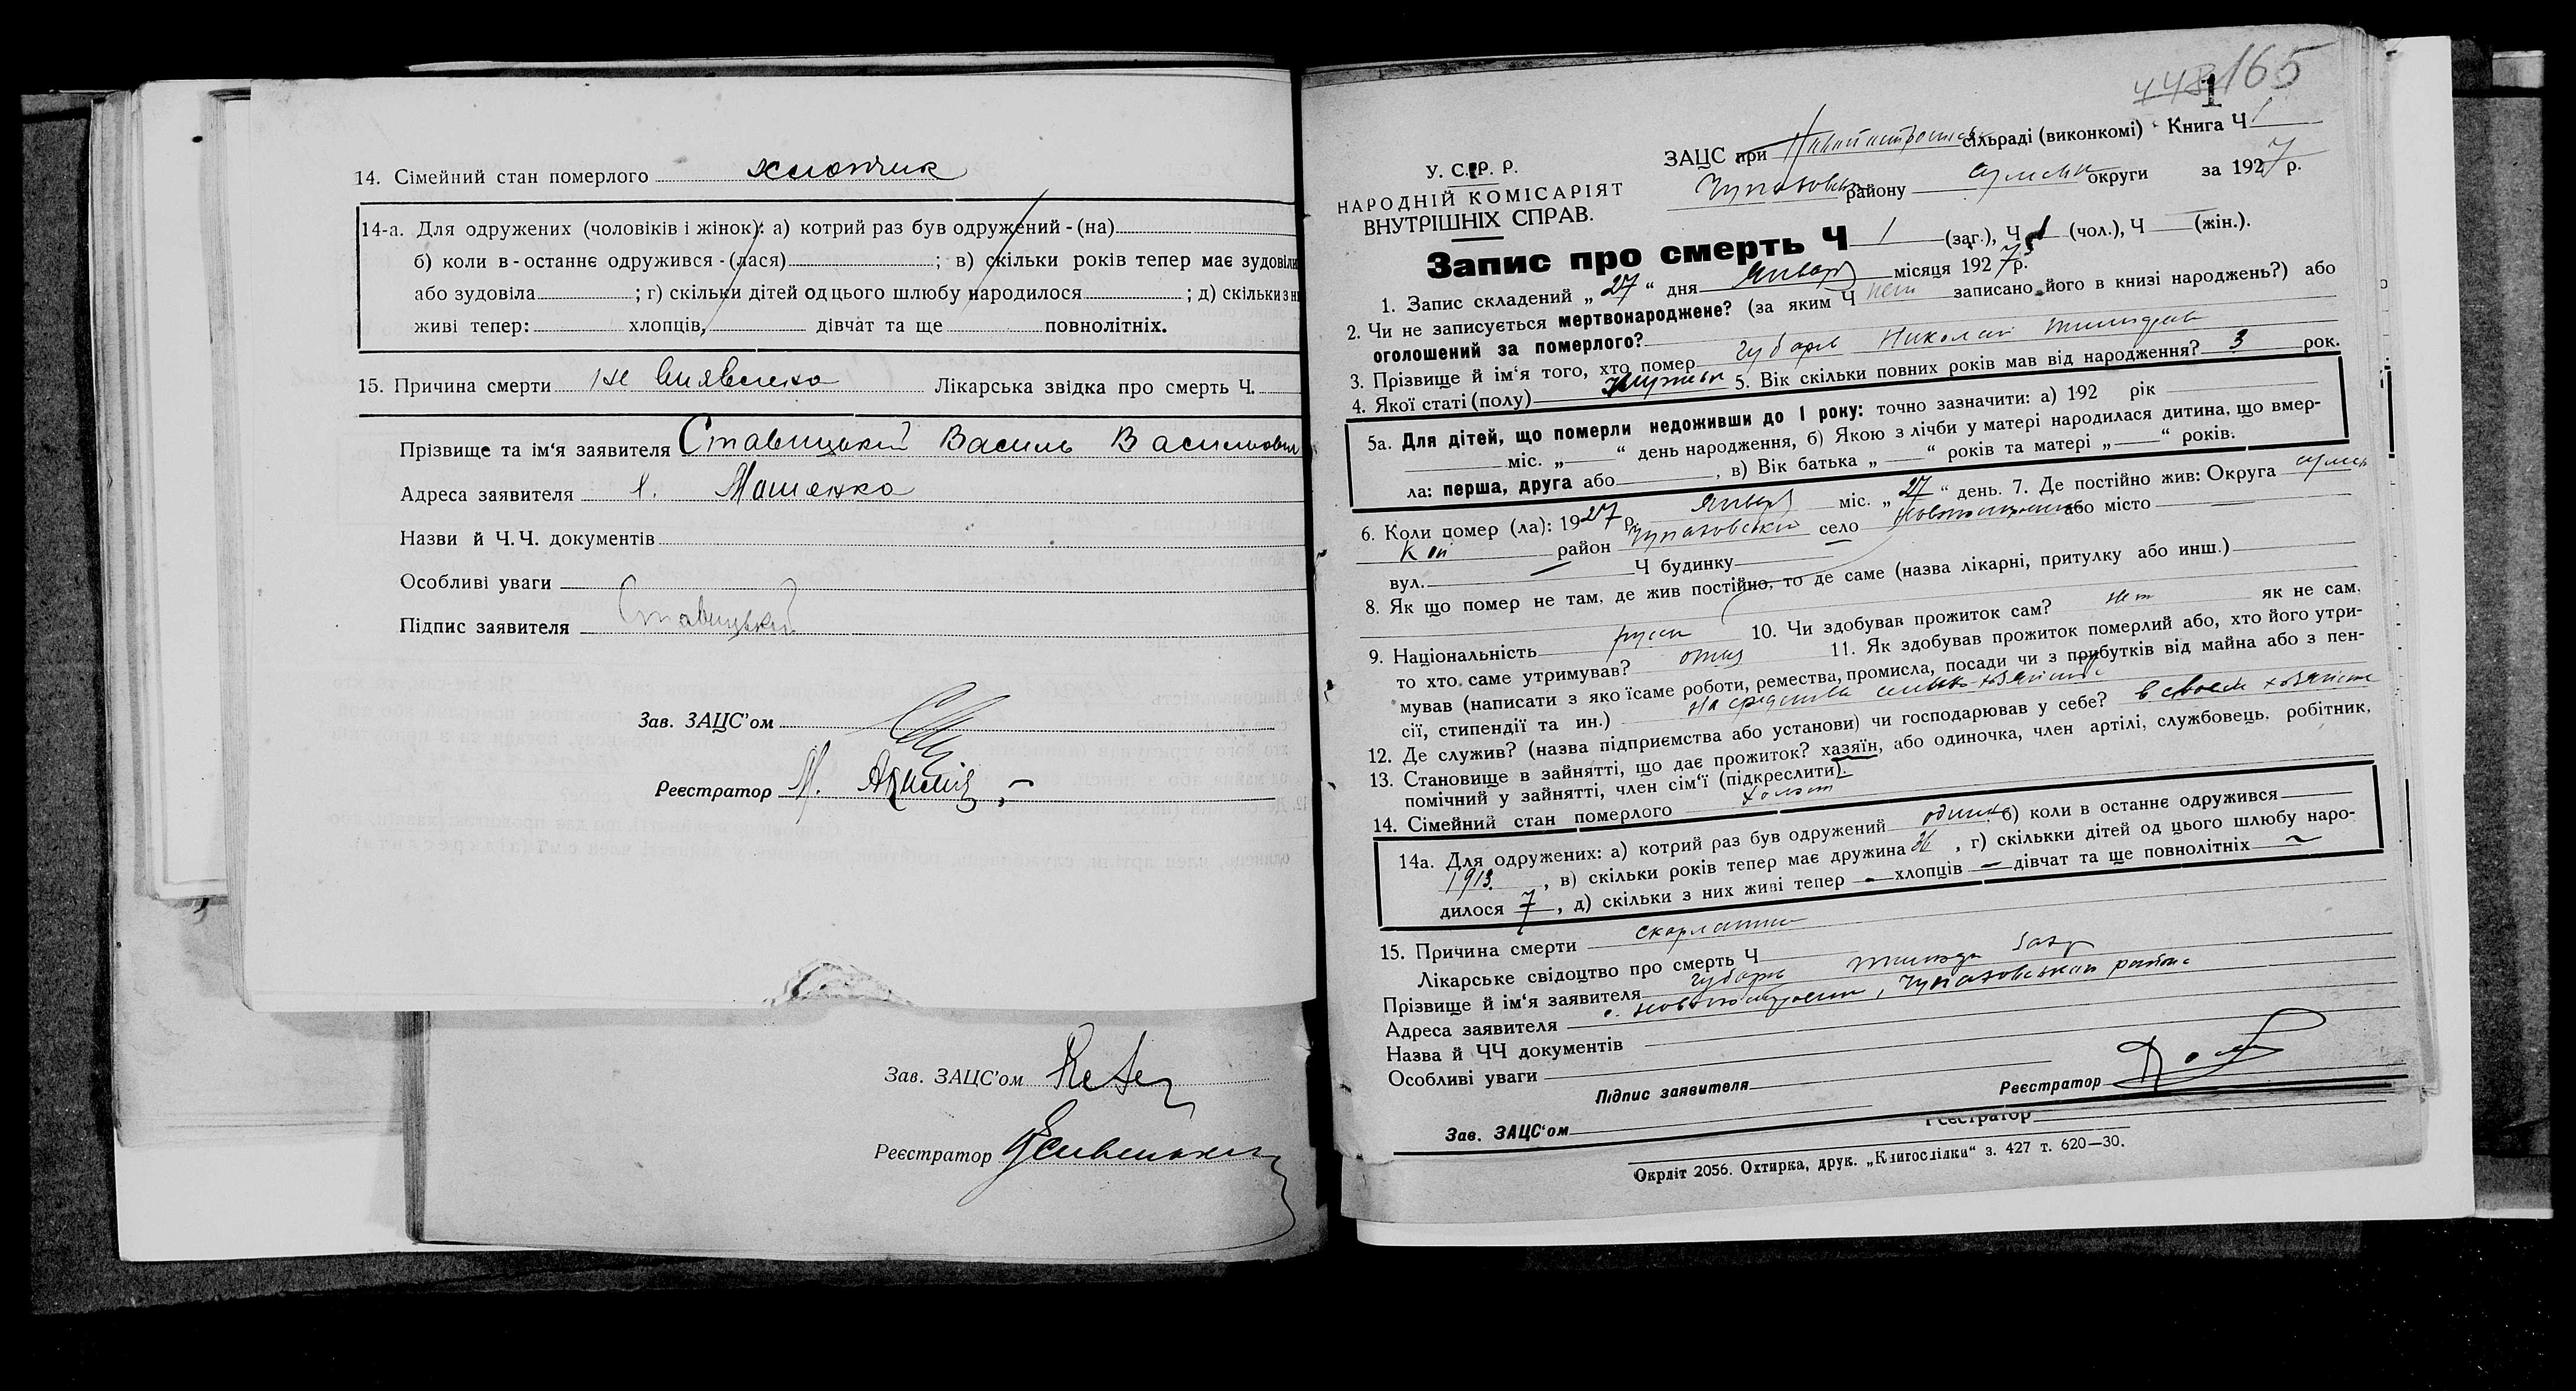 14. Сімейний стан померлого хлопчик
14-а. Для одружених (чоловіків і жінок): а) котрий раз був одружений - (на)
б) коли в - останнє одружився - (лася) ; в) скільки років тепер має зудовіли
або зудовіла ; г) скільки дітей од цього шлюбу народилося ; д) скільки з н
живі тепер: хлопців, дівчат та ще повнолітніх.
15. Причина смерти не виявлено Лікарська звідка про смерть Ч.
Прізвище та ім'я заявителя Ставицький Василь Васильович
Адреса заявителя х. Машенка
Назви й Ч.Ч. документів
Особливі уваги
Підпис заявителя Ставицький
Зав. ЗАЦС'ом
Реєстратор М.
Зав. ЗАЦС'ом
Реєстратор
165
1
У. С. Р. Р.
НАРОДНІЙ КОМІСАРІЯТ
ВНУТРІШНІХ СПРАВ.
ЗАЦС при сільраді (виконкомі) Книга Ч 1
Чупаховськ району Сумськ округи за 1927 р.
Запис про смерть Ч 1 (заг.), Ч 1 (чол.), Ч (жін.).
1. Запис складений „ 27 “ дня Январ місяця 1927 р.
2. Чи не записується мертвонароджене? (за яким Ч нет записано його в книзі народжень?) або
оголошений за померлого?
3. Прізвище й ім'я того, хто помер Губарь Николай
4. Якої статі (полу) 5. Вік скільки повних років мав від народження? 3 рок.
5а. Для дітей, що померли недоживши до 1 року: точно зазначити: а) 192 рік
міс. „ “ день народження, б) Якою з лічби у матері народилася дитина, що вмер-
ла: перша, друга або , в) Вік батька „ “ років та матері „ “ років.
6. Коли помер (ла): 1927 р. Январ міс. „ 27 “ день. 7. Де постійно жив: Округа Сумс
кой район Чупаховський село або місто
вул. Ч будинку
8. Як що помер не там, де жив постійно, то де саме (назва лікарні, притулку або инш.)
9. Національність русск 10. Чи здобував прожиток сам? нет як не сам,
то хто саме утримував? отец 11. Як здобував прожиток померлий або, хто його утри-
мував (написати з яко їсаме роботи, ремества, промисла, посади чи з прибутків від майна або з пен-
сії, стипендії та ин.) на средства сельско хозяйства
12. Де служив? (назва підприємства або установи) чи господарював у себе? в своем хозяйстве
13. Становище в зайнятті, що дає прожиток? хазяїн, або одиночка, член артілі, службовець, робітник,
помічний у зайнятті, член сім'ї (підкреслити).
14. Сімейний стан померлого холост
14а. Для одружених: а) котрий раз був одружений один б) коли в останнє одружився
1913 , в) скільки років тепер має дружина , г) скількки дітей од цього шлюбу наро-
дилося 7 , д) скільки з них живі тепер - хлопців - дівчат та ще повнолітніх
15. Причина смерти скарлатина
Лікарське свідоцтво про смерть Ч
Прізвище й ім'я заявителя Губарь
Адреса заявителя с. Чупаховськаи района
Назва й ЧЧ документів
Особливі уваги
Підпис заявителя Реєстратор
Зав. ЗАЦС'ом
Реєстратор
Окрліт 2056. Охтирка, друк. „Книгоспілки“ з. 427 т. 620—30.